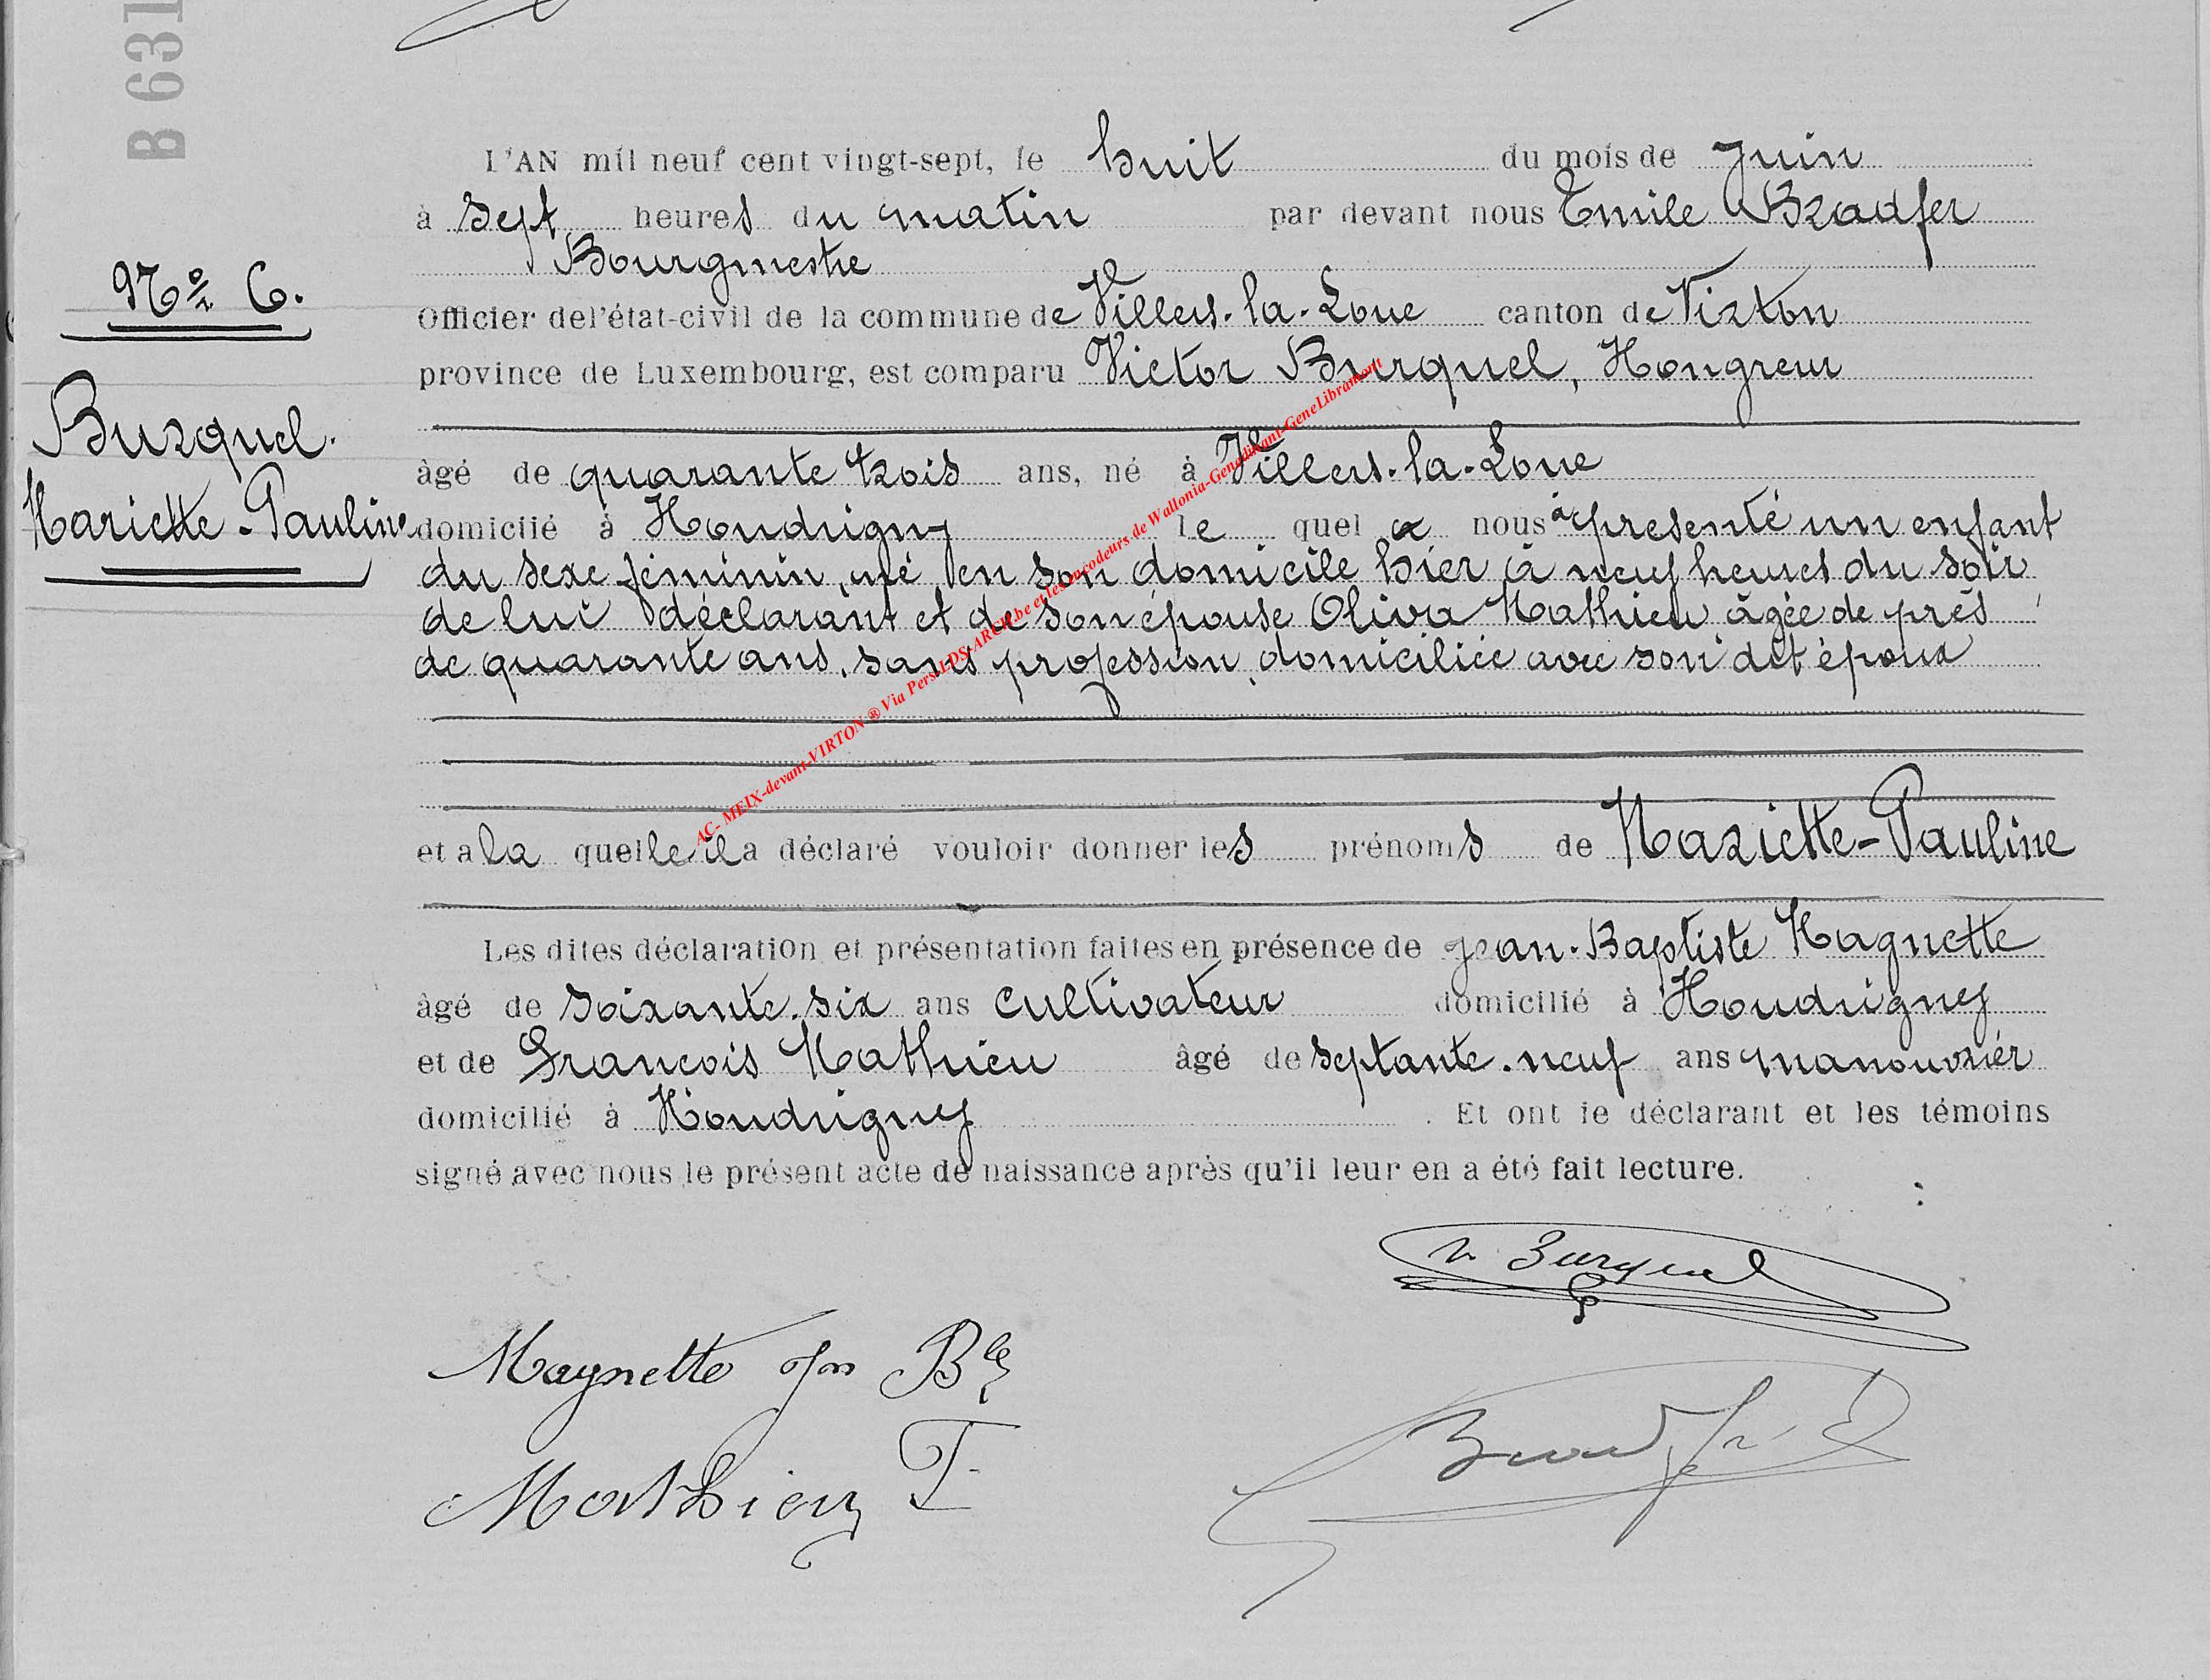 B 631
L'AN mil neuf cent vingt-sept, le huit du mois de Juin
à sept heures du matin par devant nous Emile Bradfer
Bourgmestre
Nº 6.
Officier de l'état-civil de la commune de Villers-la-Loue canton de Virton
province de Luxembourg, est comparu Victor Burquel, Hongreur
Burquel.
Mariette-Pauline
âgé de quarante trois ans, né à Villers-la-Loue
domicilié à Houdrigny le quel a nous à présenté un enfant
du sexe féminin, né en son domicile hier à neuf heures du soir
de lui déclarant et de son épouse Oliva Mathieu âgée de près
de quarante ans, sans profession, domiciliée avec son dit époux
et a la quelle il a déclaré vouloir donner les prénoms de Mariette-Pauline
Les dites déclaration et présentation faites en présence de Jean-Baptiste Magnette
âgé de soixante-six ans cultivateur domicilié à Houdrigny
et de François Mathieu âgé de septante-neuf ans manouvrier
domicilié à Houdrigny. Et ont le déclarant et les témoins
signé avec nous le présent acte de naissance après qu'il leur en a été fait lecture.
V. Burquel
Magnette Jn Bte
Mathieu F
AC- MEIX-devant-VIRTON ® Via Pers-LDS-ARCH.be et les encodeurs de Wallonia-Genedinant-GeneLibramont